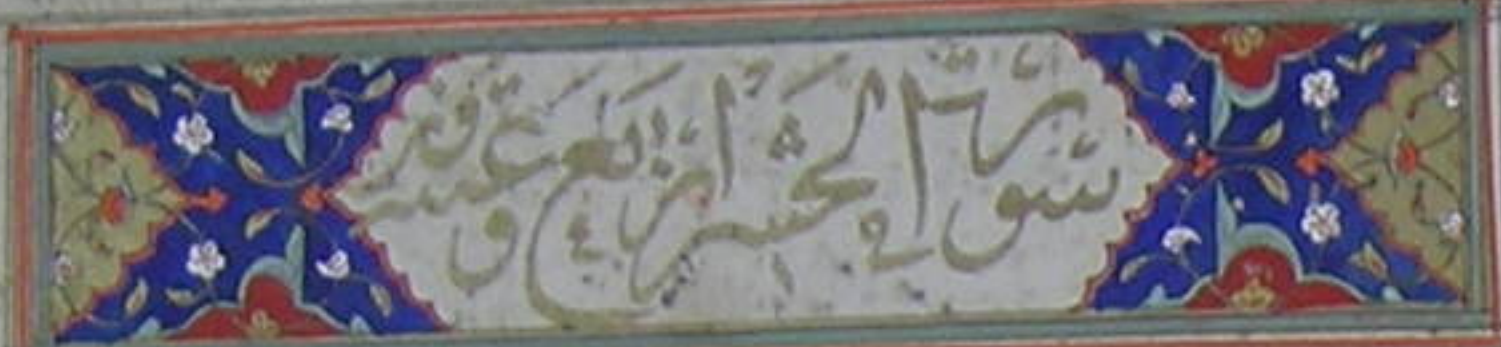 سورة الحشر اربع وعشرون